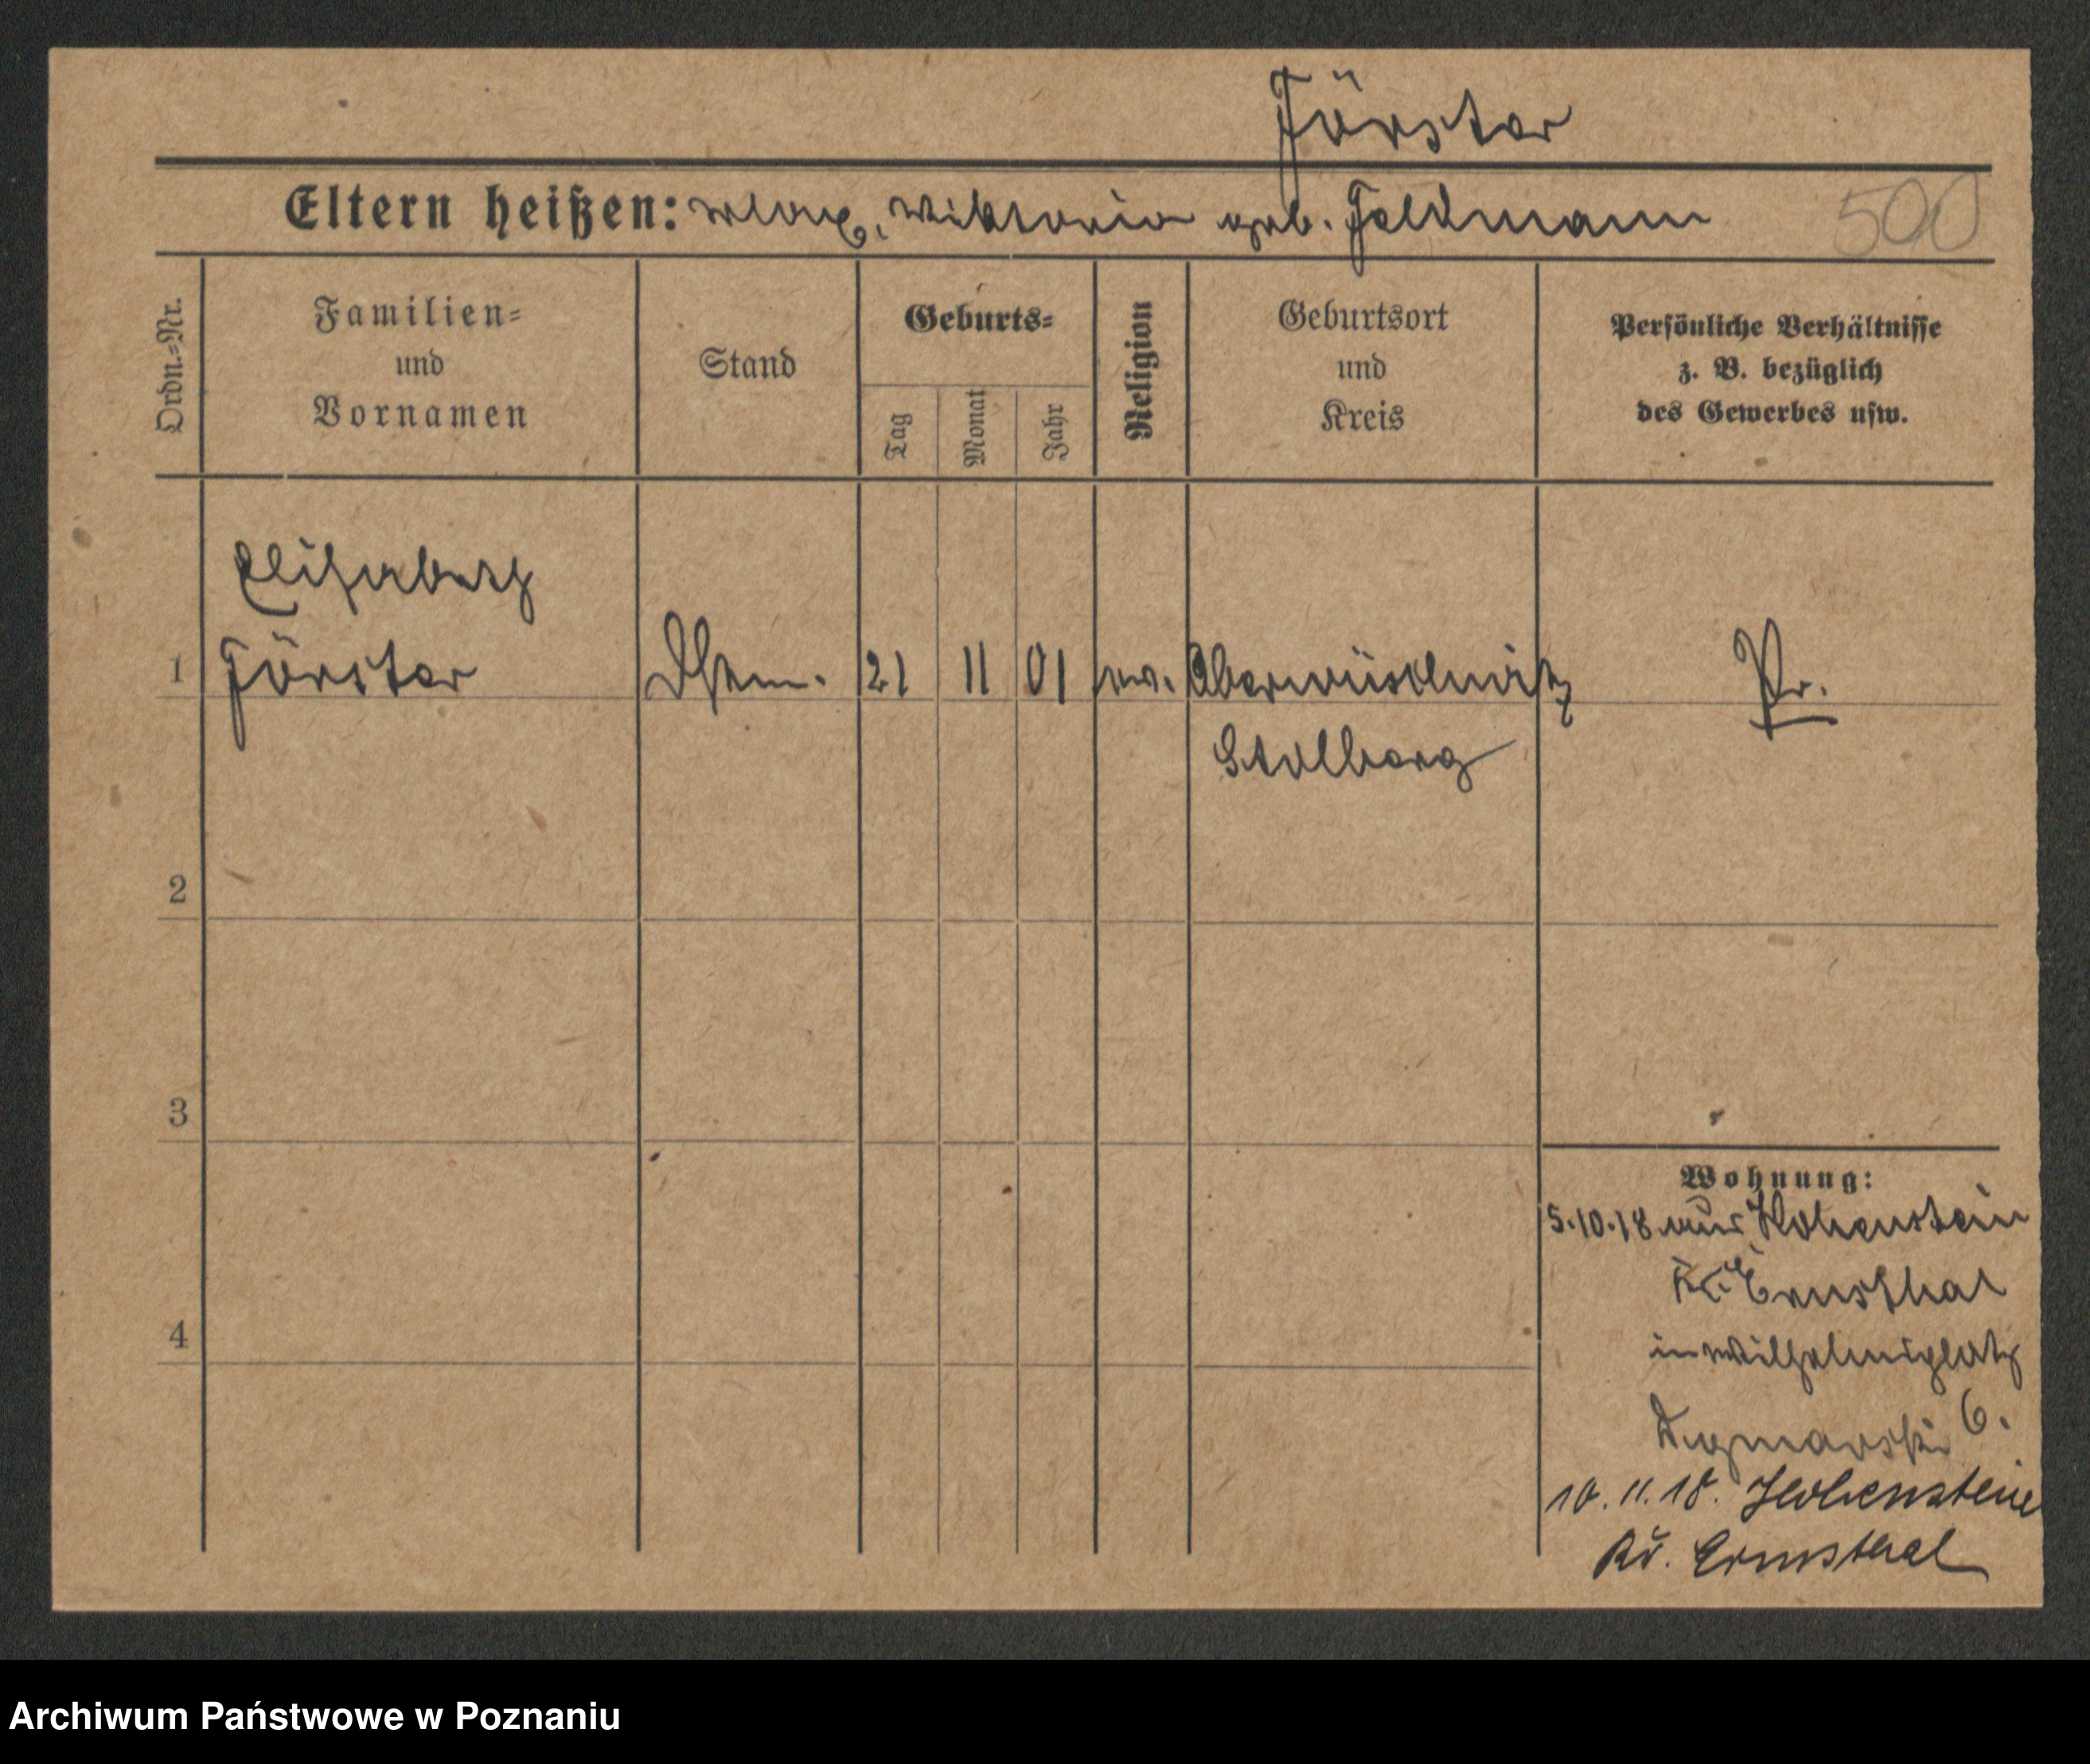 Förster
Eltern heißen: Max, Viktoria geb. Feldmann
500
Ordn.=Nr.
Familien=
und
Vornamen
Stand
Geburts=
Tag
Monat
Jahr
Religion
Geburtsort
und
Kreis
Persönliche Verhältnisse
z. B. bezüglich
des Gewerbes usw.
Elisabeth
1 Förster 21 11 01 ev. Pr.
Stolberg
2
3
4
Wohnung:
5.10.18 aus Hohenstein
Kr. Ernsthal
in Wilhelmsplatz
6.
10.11.18. Hohenstein
Kr. Ernsthal
Archiwum Państwowe w Poznaniu